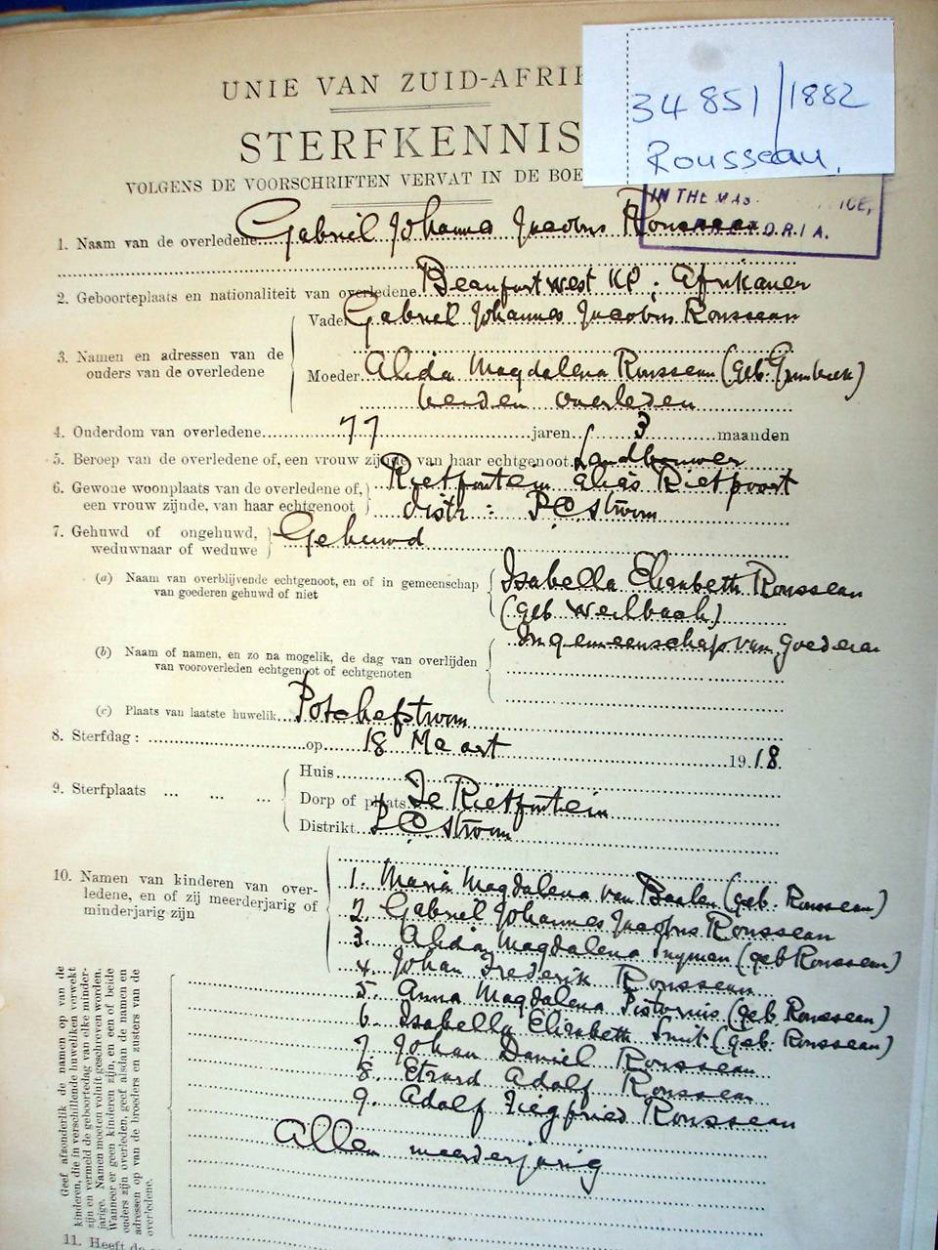 34851/1882
Rousseau.
UNIE VAN ZUID-AFRI
STERFKENNIS
VOLGENS DE VOORSCHRIFTEN VERVAT IN DE BOE
IN THE MAS ICE,
O.R.I.A.
1. Naam van de overledene Gabriel Johannes Jacobus Rousseau
2. Geboorteplaats en nationaliteit van overledene Beaufort West KP; Afrikaner
3. Namen en adressen van de ouders van de overledene
Vader Gabriel Johannes Jacobus Rousseau
Moeder Alida Magdalena Rousseau (geb.
beiden overleden
4. Ouderdom van overledene 77 jaren 3 maanden
5. Beroep van de overledene of, een vrouw zijnde van haar echtgenoot Landbouwer
6. Gewone woonplaats van de overledene of, Rietfontein alias Rietpoort
een vrouw zijnde, van haar echtgenoot distr: P.C. Stroom
7. Gehuwd of ongehuwd, weduwnaar of weduwe Gehuwd
(a) Naam van overblijvende echtgenoot, en of in gemeenschap Isabella Elizabeth Rousseau
van goederen gehuwd of niet (geb. Weilbach)
In gemeenschap van goederen
(b) Naam of namen, en zo na mogelik, de dag van overlijden
van vooroverleden echtgenoot of echtgenoten
(c) Plaats van laatste huwelik Potchefstroom
8. Sterfdag: op 18 Maart 1918.
9. Sterfplaats ... ... ...
Huis
Dorp of plaats Te Rietfontein
Distrikt P.C. Stroom
10. Namen van kinderen van over-
ledene, en of zij meerderjarig of
minderjarig zijn
1. Maria Magdalena van Baalen (geb. Rousseau)
2. Gabriel Johannes Jacobus Rousseau
3. Alida Magdalena Snyman (geb Rousseau)
4. Johan Frederik Rousseau
5. Anna Magdalena Pistorius (geb. Rousseau)
6. Isabella Elizabeth Smit (geb. Rousseau)
7. Johan Daniel Rousseau
8. Adolf Rousseau
9. Adolf Siegfried Rousseau
Allen meerderjarig
Geef afzonderlik de namen op van de
kinderen, die in verschillende huweliken verwekt
zijn en vermeld de geboortedag van elke minder-
jarige. Namen moeten voluit geschreven worden.
Wanneer er geen kinderen zijn, en een of beide
ouders zijn overleden, geef alsdan de namen en
adressen op van de broeders en zusters van de
overledene.
11. Heeft de